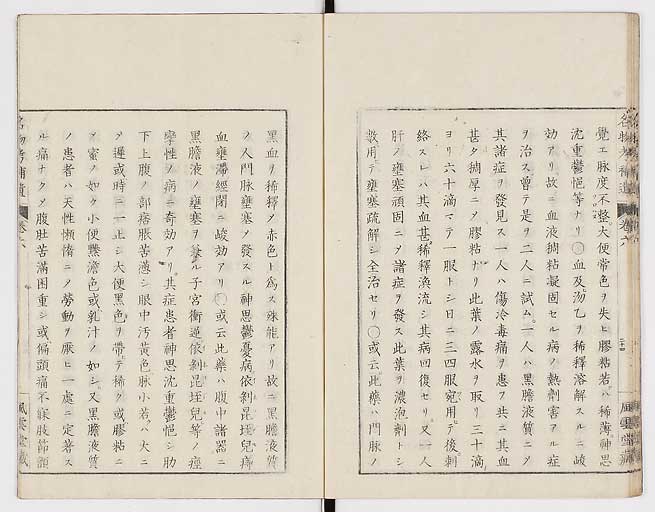 覺エ脉度不整大便常色ヲ失ヒ膠粘若ハ稀薄神思
沈重鬱悒等ナリ〇血及汤乙ヲ稀釋溶解スルニ峻
効アリ故ニ血液搠粘凝固セル病ノ熱劑害アル症
ヲ治ス曽テ是ヲ二人ニ試ム一人ハ黑膽液質ニメ
其諸症ヲ發見ス一人ハ傷冷毒痛ヲ患フ共ニ其血
甚タ搠厚ニメ膠粘ナリ此葉ノ露水ヲ取リ三十滴
ヨリ六十滴マテ一服トシ日ニ三四服宛用テ後刺
絡スレハ其血甚稀釋渙流シ其病回復セリ又一人
肝ノ壅塞頑固ニメ諸症ヲ發ス此葉ヲ濃泡劑トシ
数用テ壅塞疏解シ全治セリ〇或云此藥ハ門脉ノ
名物考補遺
卷六
風雲堂藏
黑血ヲ稀釋メ赤色ト爲ス殊能アリ故ニ黑膽液
ノ人門脉壅塞メ發スル神思鬱憂病依剝昆垤兒痛
血壅滯經閉ニ峻効アリ〇或云此藥ハ腹中諸器ニ
黑膽液ノ壅塞ヲ兼ル子宮衝逆依剝昆垤兒等ノ痙
攣性ノ病ニ奇効アリ其症患者神思沈重鬱悒シ肋
下上腹ノ部痞脹苦懣シ眼中汚黃色脉小若ハ大ニ
メ遲或時ニ一止シ大便黑色ヲ帶テ稀ク或膠粘ニ
メ蜜ノ如ク小便黲澹色或乳汁ノ如シ又黑膽液質
ノ患者ハ天性懶惰ニメ勞動ヲ厭ヒ一處ニ定著ス
ル痛ナクメ腹肚苦滿困重シ或偏頭痛不寐肢節頭
名物考補遺
卷六
風雲堂藏